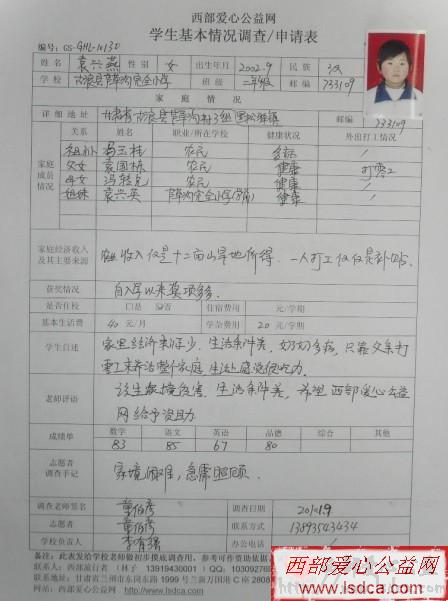 西部爱心公益网
学生基本情况调查/申请表
编号: GS-GHL-10130
姓名 袁兴燕 性别 女 出生年月 2002.9 民族 汉
学校 古浪县 完全小学 班级 二年级 邮编 733109
家庭情况
详细地址 甘肃省古浪县 村3组 邮编 733109
关系 姓名 职业/所在学校 健康状况 外出打工情况
家庭成员情况
冯玉桂 农民 多病 /
父女 袁国栋 农民 健康 打零工
母女 冯转兄 农民 健康 /
姐妹 袁兴英 完全小学 健康 /
家庭经济收入及其主要来源
收入仅是十二亩山旱地所得、一人打工仅仅是补贴。
获奖情况 自入学以来奖项多。
是否住校 口是 否 住宿费用 元/学期
基本生活费 40 元/月 学杂费用 20 元/学期
学生自述
家里经济来源少、生活条件差,奶奶多病,只靠父亲打
工来养活整个家庭 生活上感觉很吃力.
老师评语
该生 危害、生活条件差,希望西部爱心公益
网给予资助
成绩单 数学 语文 英语 品德 综合 其他
83 85 67 80
志愿者调查手记
家境困难,急需照顾.
调查老师签名 调查日期
志愿者 联系方式 13893543434
学校负责人 办公电话 /
备注:此表发给学校老师做初步摸底调查用,参考可作资助依据
联系方式:西部旅行者 (林子 13919430001) QQ:
联系地址:甘肃省兰州市东岗东路1999号兰新万国港C座2808
联系网站:西部爱心公益网
西部爱心公益网
www.lsdca.com